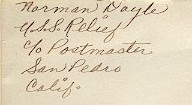 Norman Doyle
U.S.S. Relief
c/o Postmaster
San Pedro
Calif.